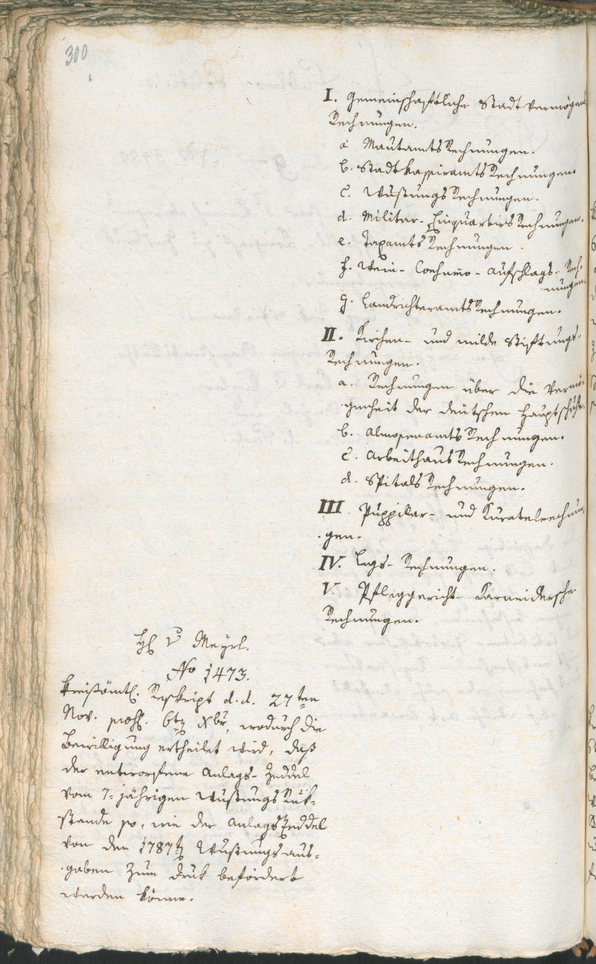 300
I. Gemeinschaftliche Stadtvermögens
Rechnungen.
a. Mautamts Rechnungen.
b. Stadtkassiramts Rechnungen
c. Wustungs Rechnungen.
d. Militar-Einquartirs Rechnungen.
e. Taxamts Rechnungen.
f. Wein- Consumo- Aufschlags- Rech-
nungen
g. Landrichteramts Rechnungen.
II. Kirchen- und milde Stiftungs-
Rechnungen.
a. Rechnungen über die Vermö-
genheit der deutschen Hauptschule.
b. Almosenamts Rechnungen.
c. Arbeithaus Rechnungen.
d. Spitals Rechnungen.
III. Pupillar- und Kuratelrechnun-
gen.
IV. Lags- Rechnungen.
V. Pfleggericht- Karneidersche
Rechnungen.
H v. Mayrl.
No 1473.
Kreisämtl. Reskript d.d. 27ten
Nov. präs. 6ten Xbr, wodurch die
Bewilligung ertheilet wird, daß
der entworfene Anlags-Zeddel
vom 7-jährigen Wustungs Rük-
stande so, wie der Anlags Zeddel
von den 1787er Wustungs aus-
gaben zum Druk befördert
werden könne.